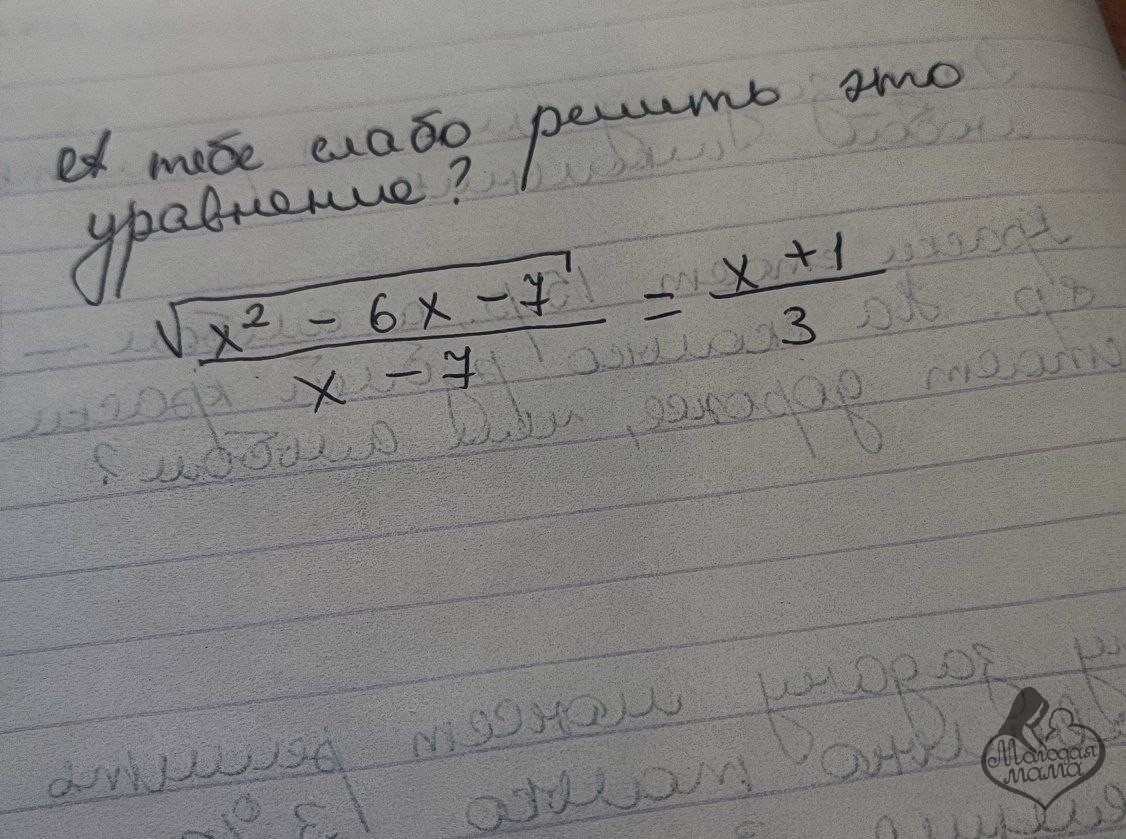 А тебе слабо решить это
уравнение?
√x² - 6x - 7 / x - 7 = x + 1 / 3
Молодая
мама